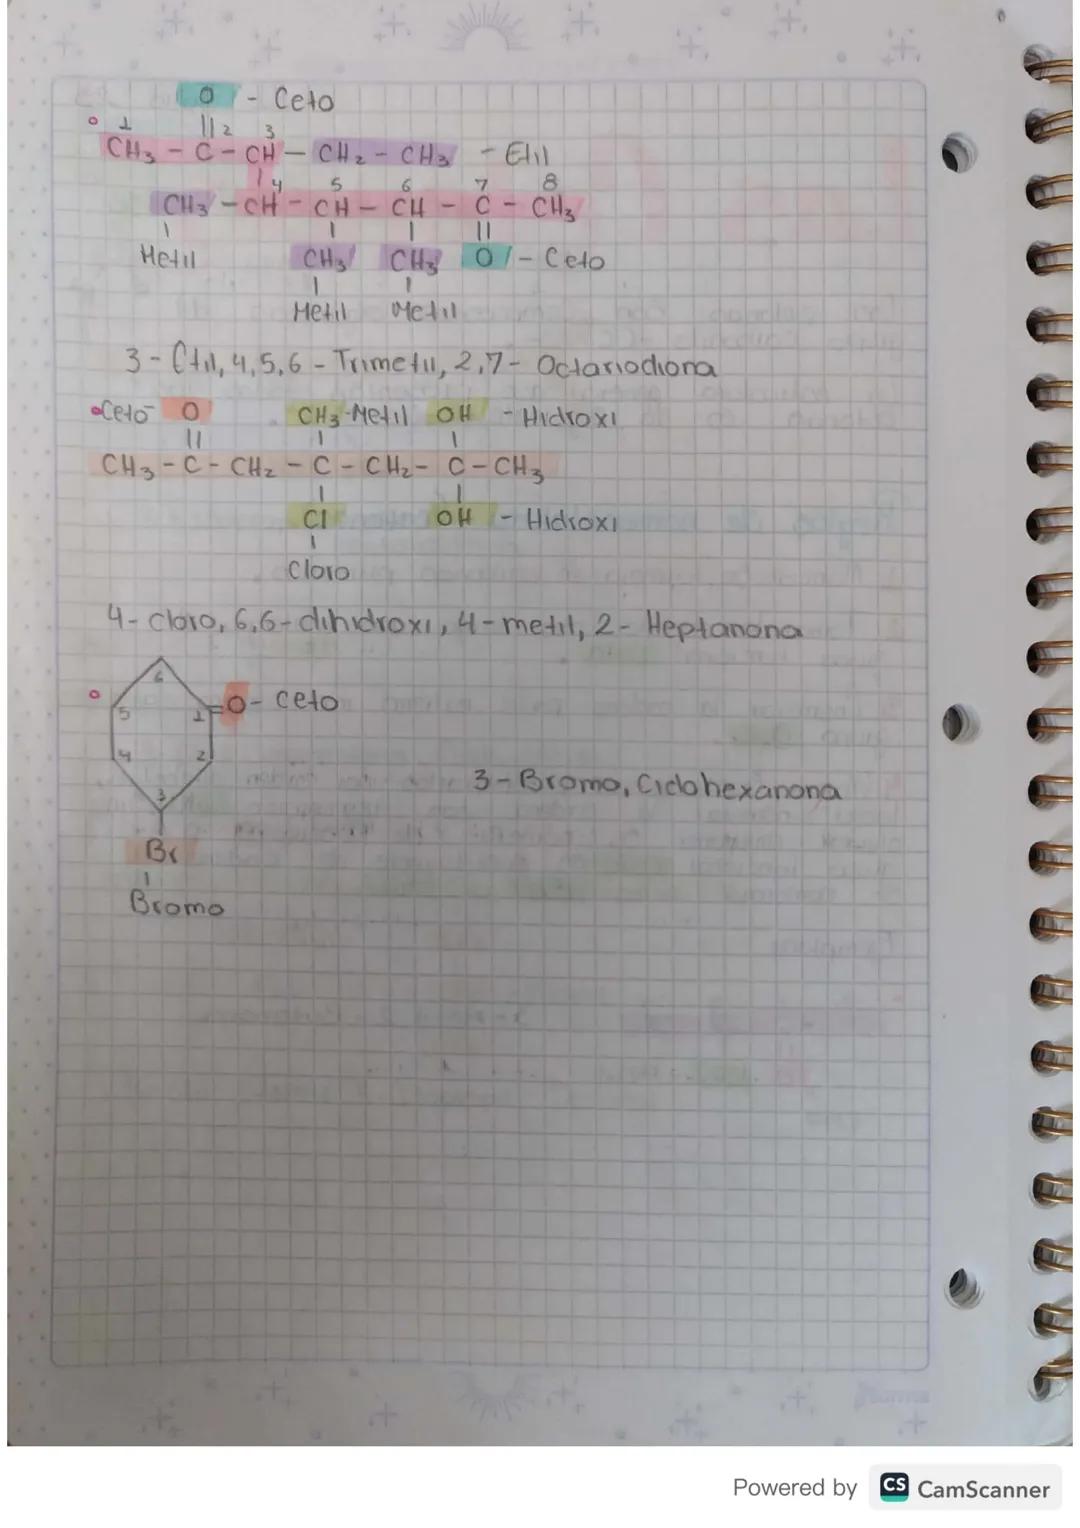 O - Ceto
1 || 2 3
CH₃ - C - CH - CH₂ - CH₃ - Etil
4 5 6 7 8
CH₃ - CH - CH - CH - C - CH₃
| | | ||
Metil CH₃ CH₃ O - Ceto
| |
Metil Metil
3 - Etil, 4,5,6 - Trimetil, 2,7 - Octanodiona
Ceto - O CH₃ - Metil OH - Hidroxi
|| | |
CH₃ - C - CH₂ - C - CH₂ - C - CH₃
| |
Cl OH - Hidroxi
|
Cloro
4 - cloro, 6,6 - dihidroxi, 4 - metil, 2 - Heptanona
6
5 1 =O - ceto
4 2
3
3 - Bromo, Ciclohexanona
Br
|
Bromo
Powered by CS CamScanner